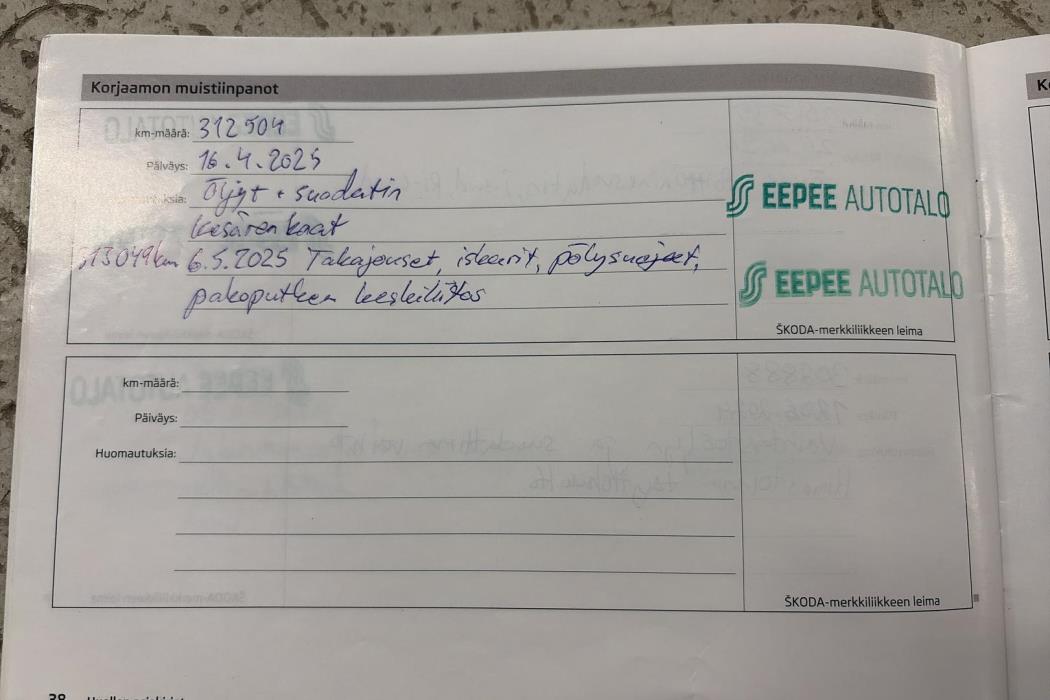 Korjaamon muistiinpanot
km-määrä: 312 504
Päiväys: 16.4.2025
Öljyt + suodatin
kesärenkaat
313049km 6.5.2025 Takajouset, iskarit, pölysuojat,
pakoputken keskiliitos
EEPEE AUTOTALO
EEPEE AUTOTALO
ŠKODA-merkkiliikkeen leima
km-määrä:
Päiväys:
Huomautuksia:
ŠKODA-merkkiliikkeen leima
38